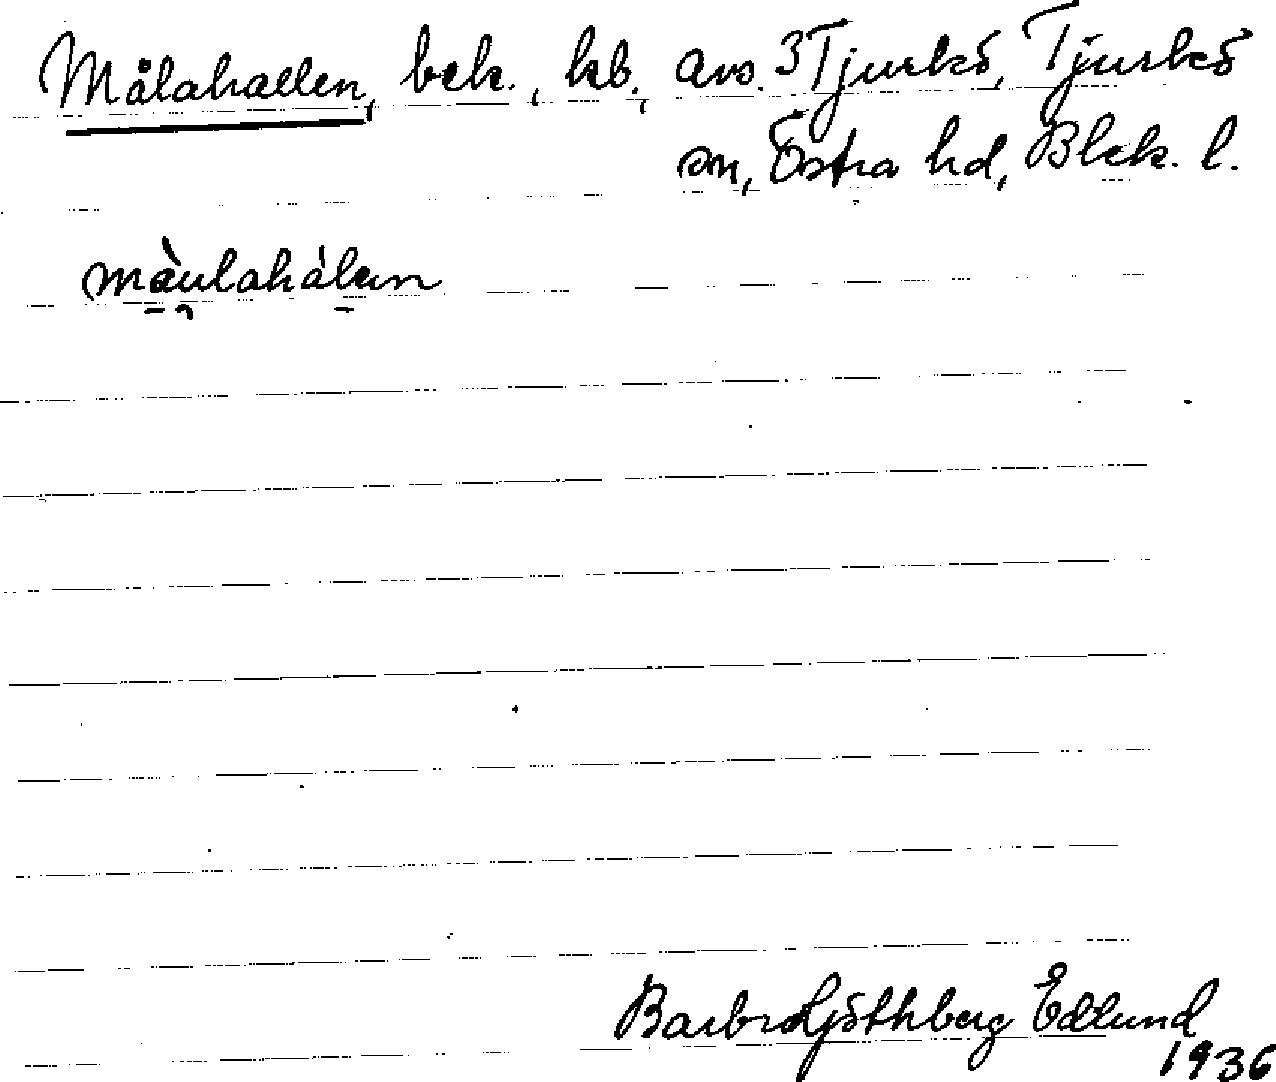 Målahallen, bek., kb., avs. 3 Tjurkö, Tjurkö
sn, Östra hd, Blek. l.
màulahálen
Barbro Ljöthberg Edlund
1936